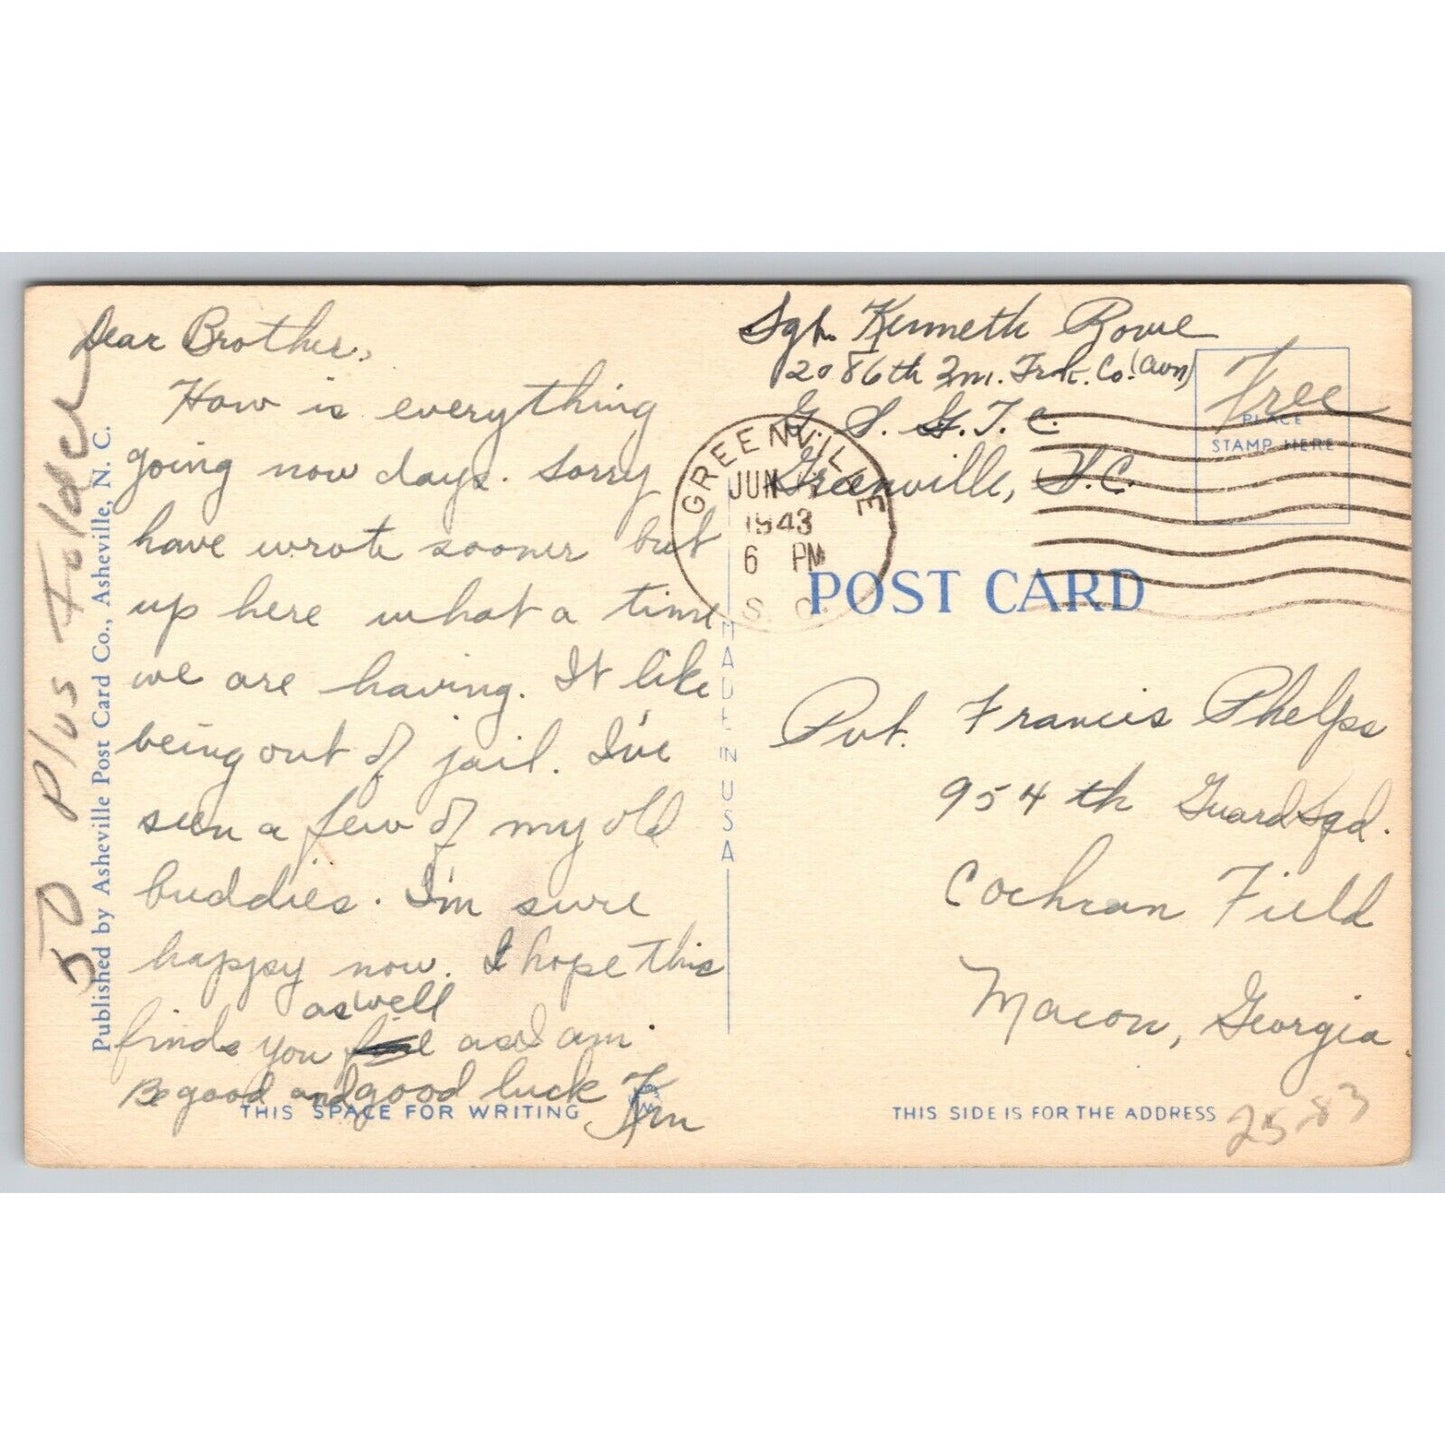 Dear Brother,
How is everything
going now days. Sorry
have wrote sooner but
up here what a time
we are having. It like
being out of jail. I've
seen a few of my old
buddies. I'm sure
happy now. I hope this
as well
finds you as I am.
Be good and good luck Ken
THIS SPACE FOR WRITING
50 Plus Folder
Published by Asheville Post Card Co., Asheville, N. C.
MADE IN USA
Sgt. Kenneth Rowe
2086th Trk. Co. (Avn)
G. S. G. T. C.
Greenville, S.C.
Free
PLACE
STAMP HERE
GREENVILLE
JUN
1943
6 PM
S. C.
POST CARD
Pvt. Francis Phelps
954th Guard Sqd.
Cochran Field
Macon, Georgia.
THIS SIDE IS FOR THE ADDRESS
25-83